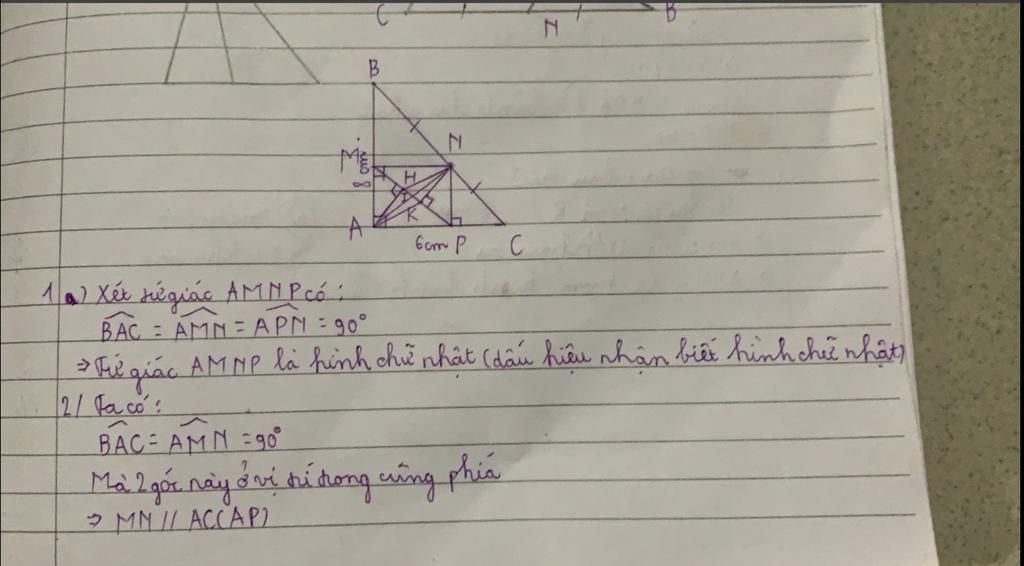 C N B
B
N
M
H
I
A K
6cm P C
1 a) Xét tứ giác AMNP có:
BAC = AMN = APN = 90°
⇒ Tứ giác AMNP là hình chữ nhật (dấu hiệu nhận biết hình chữ nhật)
2/ Ta có:
BAC = AMN = 90°
Mà 2 góc này ở vị trí trong cùng phía
⇒ MN // AC(AP)